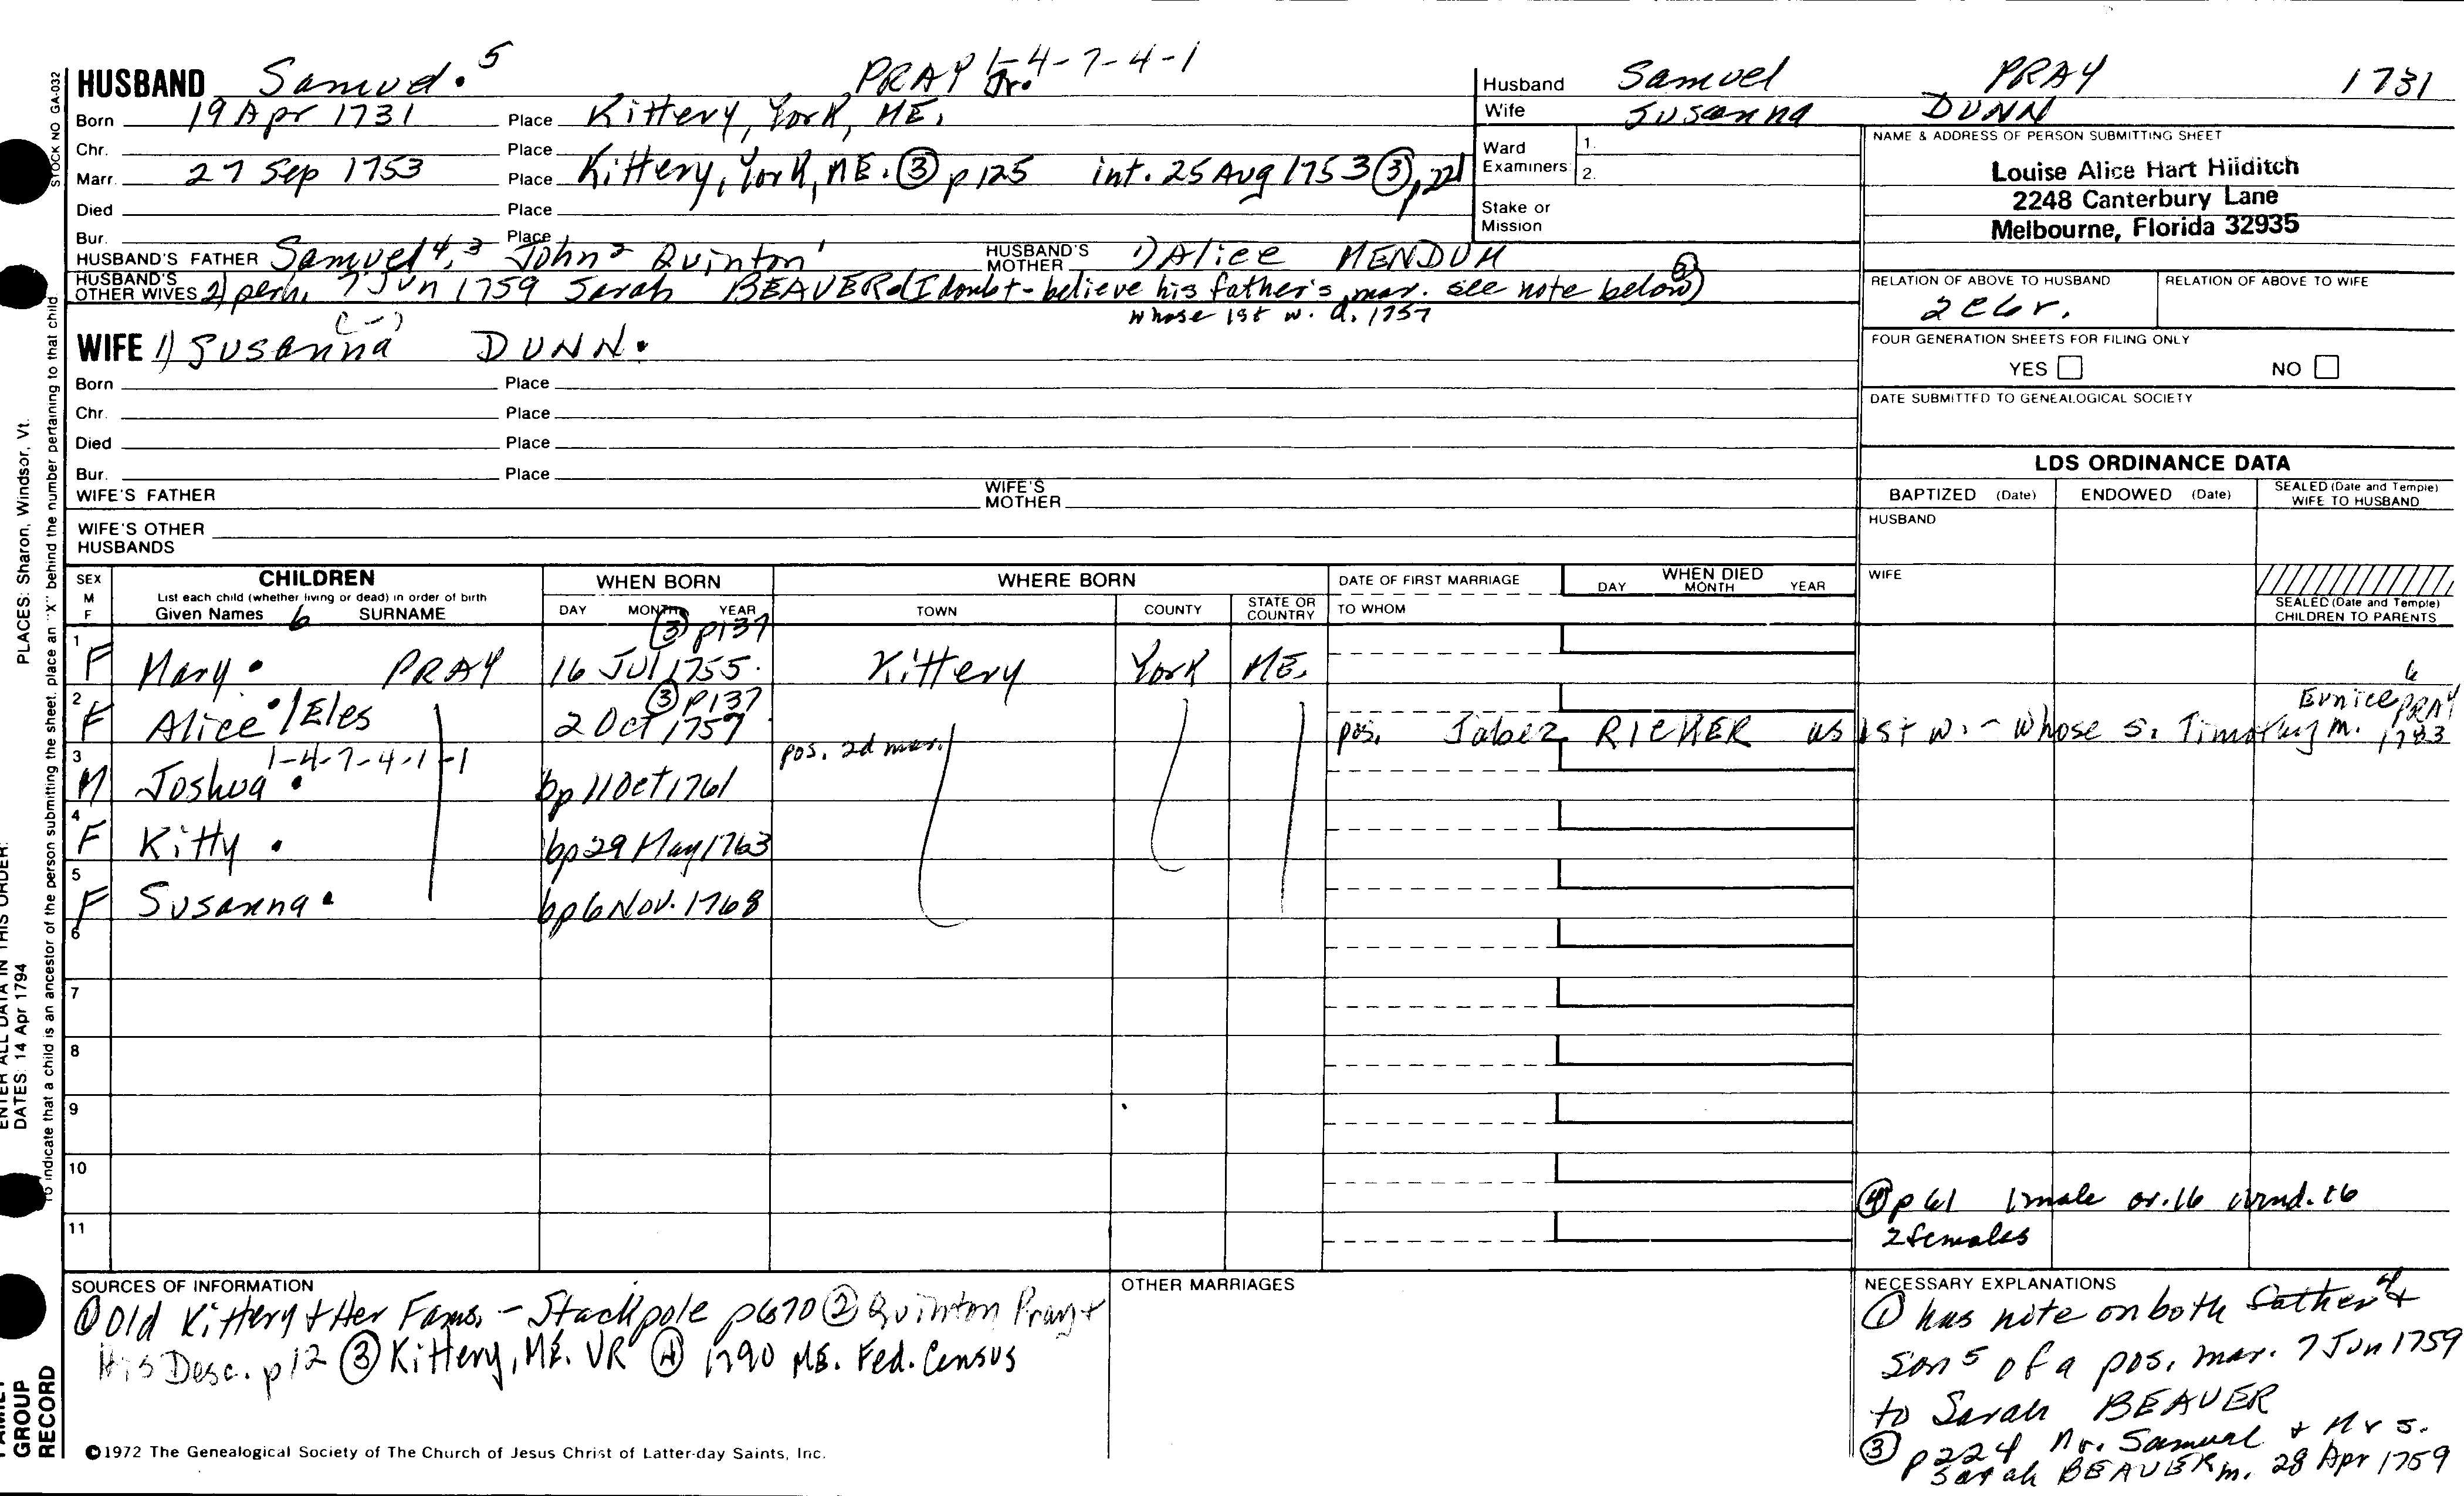 STOCK NO GA-032
HUSBAND Samuel. 5 PRAY Jr. 1-4-7-4-1
Born 19 Apr 1731 Place Kittery, York, ME.
Chr. Place
Marr. 27 Sep 1753 Place Kittery, York, ME. ③ p 125 int. 25 Aug 1753 ③ p 221
Died Place
Bur. Place
HUSBAND'S FATHER Samuel 4, 3 John 2 Quinton 1 HUSBAND'S MOTHER 1) Alice MENDUM
HUSBAND'S OTHER WIVES 2) perh. 7 Jun 1759 Sarah BEAVER (I doubt - believe his father's mar. see note below)
whose 1st w. d. 1757
(-)
WIFE 1) Susanna DUNN.
Born Place
Chr. Place
Died Place
Bur. Place
WIFE'S FATHER WIFE'S MOTHER
WIFE'S OTHER HUSBANDS
Husband Samuel PRAY 1731
Wife Susanna DUNN
Ward Examiners: 1.
2.
Stake or Mission
NAME & ADDRESS OF PERSON SUBMITTING SHEET
Louise Alice Hart Hilditch
2248 Canterbury Lane
Melbourne, Florida 32935
RELATION OF ABOVE TO HUSBAND RELATION OF ABOVE TO WIFE
FOUR GENERATION SHEETS FOR FILING ONLY
YES NO
DATE SUBMITTED TO GENEALOGICAL SOCIETY
LDS ORDINANCE DATA
BAPTIZED (Date) ENDOWED (Date) SEALED (Date and Temple) WIFE TO HUSBAND
HUSBAND
WIFE
SEALED (Date and Temple) CHILDREN TO PARENTS
SEX M F CHILDREN WHEN BORN WHERE BORN DATE OF FIRST MARRIAGE WHEN DIED
List each child (whether living or dead) in order of birth DAY MONTH YEAR TOWN COUNTY STATE OR COUNTRY TO WHOM DAY MONTH YEAR
Given Names 6 SURNAME
③ p137
1 F Mary. PRAY 16 Jul 1755. Kittery York ME.
③ p137 6 Eunice PRAY
2 F Alice./Eles 2 Oct 1757 pos. Jabez RICKER as 1st w. - whose s. Timothy m. 1783
pos. 2d mar.
1-4-7-4-1-1
3 M Joshua. bp 11 Oct 1761
4 F Kitty. bp 29 May 1763
5 F Susanna. bp 6 Nov. 1768
6
7
8
9
10
④ p 61 1 male ov. 16 und. 16
11 2 females
SOURCES OF INFORMATION
① Old Kittery + Her Fams. - Stackpole p 670 ② Quinton Pray +
His Desc. p 12 ③ Kittery, ME. VR ④ 1790 ME. Fed. Census
OTHER MARRIAGES
NECESSARY EXPLANATIONS
① has note on both father 4 +
son 5 of a pos. mar. 7 Jun 1759
to Sarah BEAVER
③ p 224 Mr. Samuel + Mrs.
Sarah BEAVER m. 28 Apr 1759
©1972 The Genealogical Society of The Church of Jesus Christ of Latter-day Saints, Inc.
PLACES: Sharon, Windsor, Vt.
ENTER ALL DATA IN THIS ORDER:
DATES: 14 Apr 1794
To indicate that a child is an ancestor of the person submitting the sheet, place an "X" behind the number pertaining to that child
FAMILY GROUP RECORD